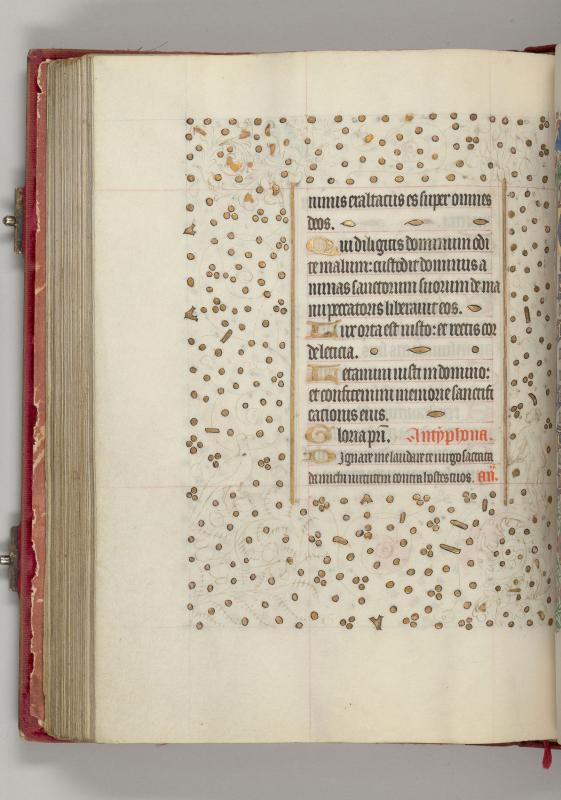 nimis exaltatus es super omnes
deos.
Qui diligitis dominum odi
te malum: custodit dominus a
nimas sanctorum suorum de ma
nu peccatoris liberavit eos.
Lux orta est iusto: et rectis cor
de leticia.
Letamini iusti in domino:
et confitemini memorie sanctifi
cationis eius.
Gloria pri. Antyphona.
Dignare me laudare te virgo sacrata
da michi virtutem contra hostes tuos. an.